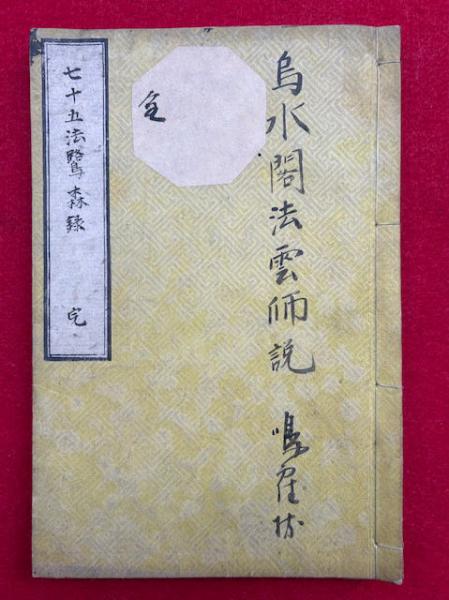 烏水閣法雲師説
鳴
全
七十五法鷺森録 完